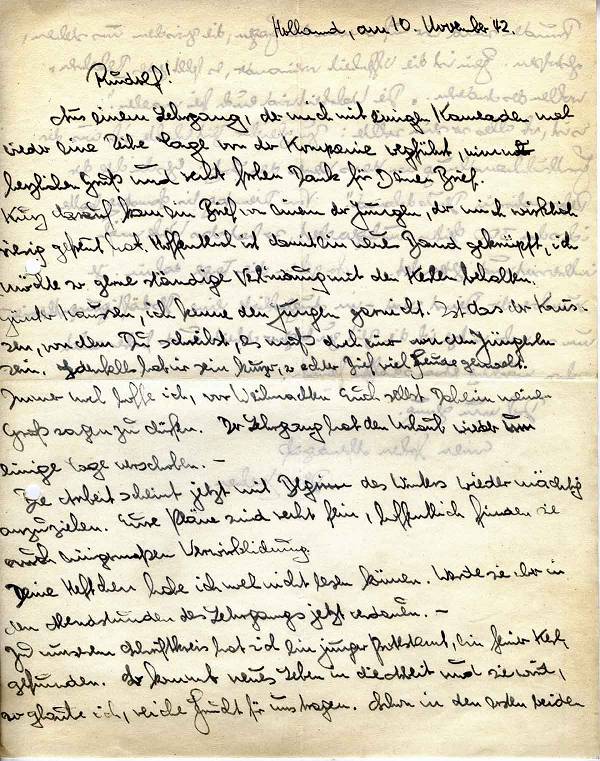 Holland, am 10. November 42.
Rudolf!
Aus einem Lehrgang, der mich mit einigen Kameraden mal
wieder eine Reihe Tage von der Kompanie wegführt, nimm
herzlichen Gruß und recht frohen Dank für Deinen Brief.
Kurz darauf kam ein Brief von einem der Jungen, der mich wirklich
riesig gefreut hat. Hoffentlich ist damit ein neues Band geknüpft, ich
möchte so gerne ständige Verbindung mit den Kerlen behalten.
Hausen, ich kenne den Jungen garnicht. Ist das der Hau-
sen, von dem Du schreibst, es muß doch einer von den Jüngeren
sein. Jedenfalls hat mir sein kurzer, so echter Brief viel Freude gemacht.
Immer noch hoffe ich, vor Weihnachten Euch selbst daheim meinen
Gruß sagen zu dürfen. Der Lehrgang hat den Urlaub wieder um
einige Tage verschoben. –
Die Arbeit scheint jetzt mit Beginn des Winters wieder mächtig
anzuziehen. Eure Pläne sind recht fein, hoffentlich finden sie
auch einigermaßen Verwirklichung.
Deine Heftchen habe ich noch nicht lesen können. Werde sie aber in
den Abendstunden des Lehrgangs jetzt . –
Zu unserem Schriftkreis hat sich ein junger Protestant, ein feiner Kerl,
gefunden. So kommt neues Leben in die Arbeit und sie wird,
so glaube ich, reiche Frucht für uns tragen. Schon in den ersten beiden